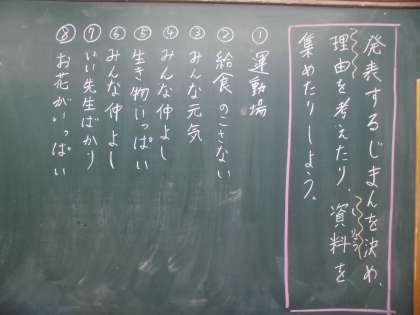 発表するじまんを決め、
理由を考えたり、資料を
集めたりしよう。
①運動場
②給食のこさない
③みんな元気
④みんな仲よし
⑤生き物いっぱい
⑥みんな仲よし
⑦いい先生ばかり
⑧お花がいっぱい